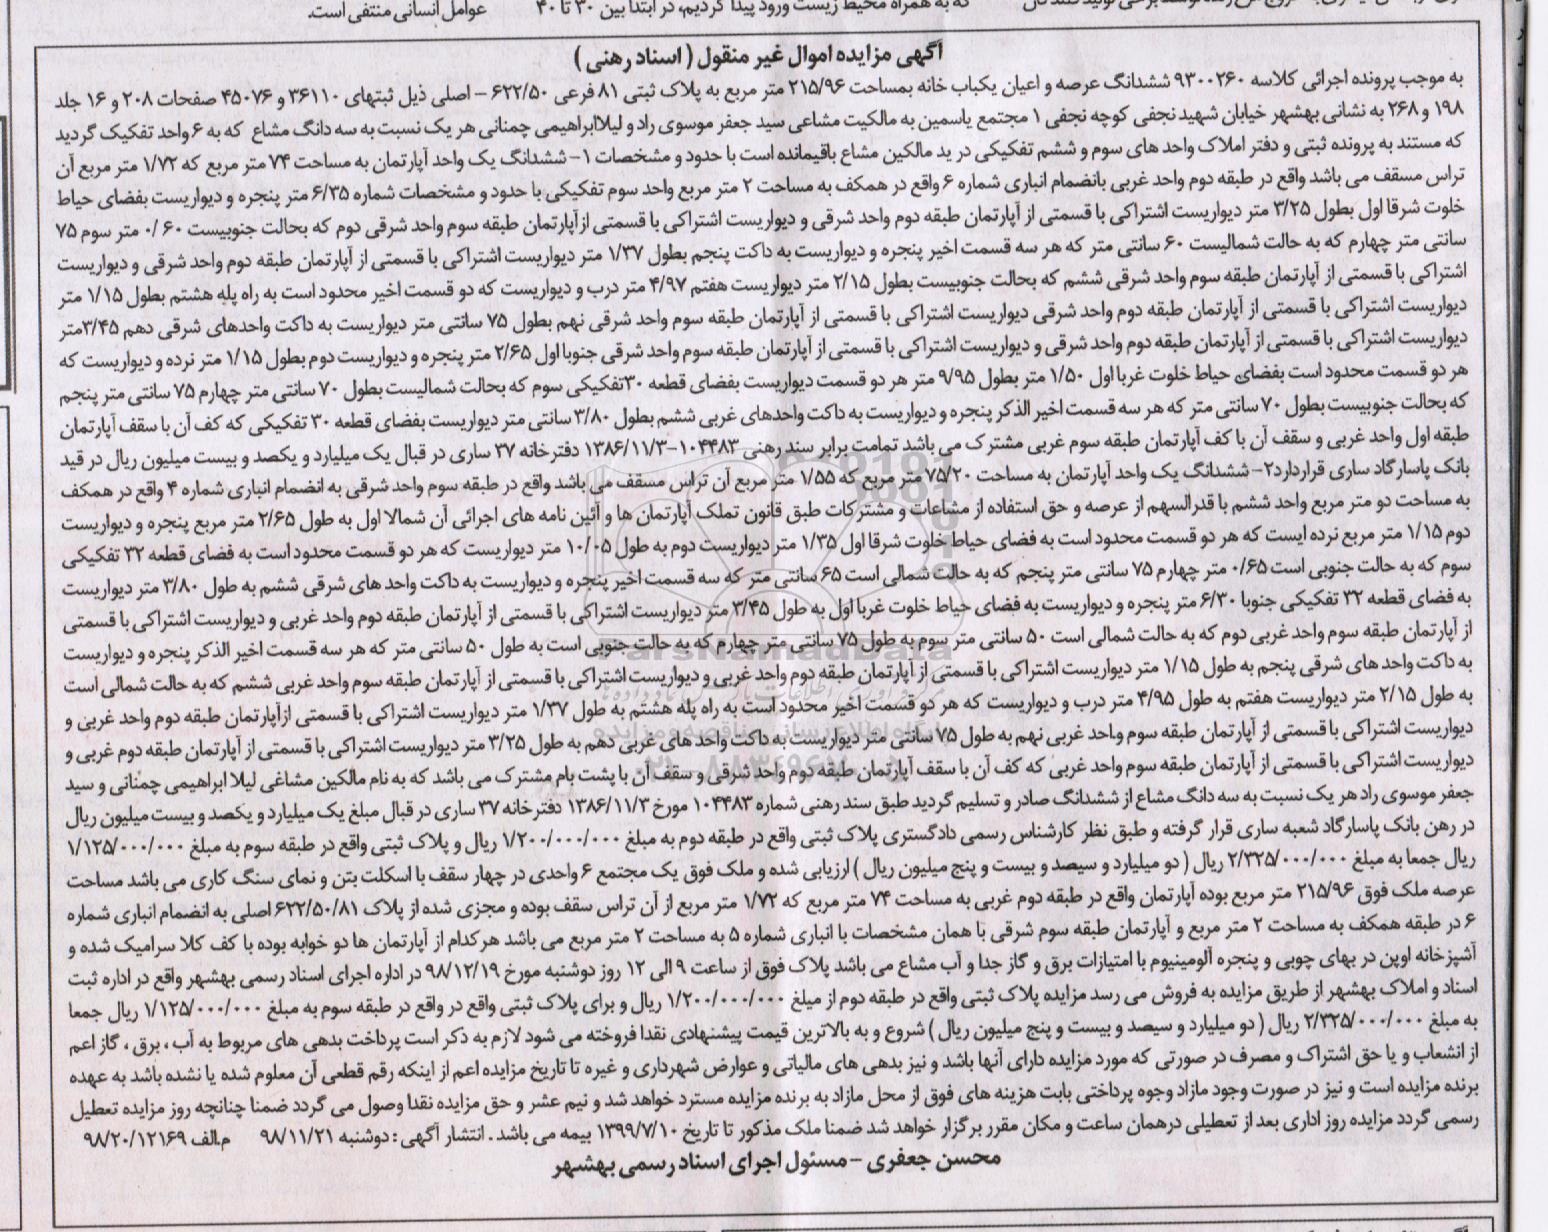 که به همراه محیط زیست ورود پیدا کردیم، در ابتدا بین ۳۰ تا ۴۰
عوامل انسانی منتفی است.
آگهی مزایده اموال غیر منقول ( اسناد رهنی )
به موجب پرونده اجرائی کلاسه ۹۳۰۰۲۶۰ ششدانگ عرصه و اعیان یکباب خانه بمساحت ۲۱۵/۹۶ متر مربع به پلاک ثبتی ۸۱ فرعی ۶۲۲/۵۰ – اصلی ذیل ثبتهای ۳۶۱۱۰ و ۴۵۰۷۶ صفحات ۲۰۸ و ۱۶ جلد
۱۹۸ و ۲۶۸ به نشانی بهشهر خیابان شهید نجفی کوچه نجفی ۱ مجتمع یاسمین به مالکیت مشاعی سید جعفر موسوی راد و لیلاابراهیمی چمنانی هر یک نسبت به سه دانگ مشاع که به ۶ واحد تفکیک گردید
که مستند به پرونده ثبتی و دفتر املاک واحد های سوم و ششم تفکیکی در ید مالکین مشاع باقیمانده است با حدود و مشخصات ۱- ششدانگ یک واحد آپارتمان به مساحت ۷۴ متر مربع که ۱/۷۲ متر مربع آن
تراس مسقف می باشد واقع در طبقه دوم واحد غربی بانضمام انباری شماره ۶ واقع در همکف به مساحت ۲ متر مربع واحد سوم تفکیکی با حدود و مشخصات شماره ۶/۳۵ متر پنجره و دیواریست بفضای حیاط
خلوت شرقا اول بطول ۳/۲۵ متر دیواریست اشتراکی با قسمتی از آپارتمان طبقه دوم واحد شرقی و دیواریست اشتراکی با قسمتی ازآپارتمان طبقه سوم واحد شرقی دوم که بحالت جنوبیست ۰/۶۰ متر سوم ۷۵
سانتی متر چهارم که به حالت شمالیست ۶۰ سانتی متر که هر سه قسمت اخیر پنجره و دیواریست به داکت پنجم بطول ۱/۳۷ متر دیواریست اشتراکی با قسمتی از آپارتمان طبقه دوم واحد شرقی و دیواریست
اشتراکی با قسمتی از آپارتمان طبقه سوم واحد شرقی ششم که بحالت جنوبیست بطول ۲/۱۵ متر دیواریست هفتم ۴/۹۷ متر درب و دیواریست که دو قسمت اخیر محدود است به راه پله هشتم بطول ۱/۱۵ متر
دیواریست اشتراکی با قسمتی از آپارتمان طبقه دوم واحد شرقی دیواریست اشتراکی با قسمتی از آپارتمان طبقه سوم واحد شرقی نهم بطول ۷۵ سانتی متر دیواریست به داکت واحدهای شرقی دهم ۳/۴۵متر
دیواریست اشتراکی با قسمتی از آپارتمان طبقه دوم واحد شرقی و دیواریست اشتراکی با قسمتی از آپارتمان طبقه سوم واحد شرقی جنوبا اول ۲/۶۵ متر پنجره و دیواریست دوم بطول ۱/۱۵ متر نرده و دیواریست که
هر دو قسمت محدود است بفضای حیاط خلوت غربا اول ۱/۵۰ متر بطول ۹/۹۵ متر هر دو قسمت دیواریست بفضای قطعه ۳۰تفکیکی سوم که بحالت شمالیست بطول ۷۰ سانتی متر چهارم ۷۵ سانتی متر پنجم
که بحالت جنوبیست بطول ۷۰ سانتی متر که هر سه قسمت اخیر الذکر پنجره و دیواریست به داکت واحدهای غربی ششم بطول ۳/۸۰ سانتی متر دیواریست بفضای قطعه ۳۰ تفکیکی که کف آن با سقف آپارتمان
طبقه اول واحد غربی و سقف آن با کف آپارتمان طبقه سوم غربی مشترک می باشد تمامت برابر سند رهنی ۱۰۴۴۸۳-۱۳۸۶/۱۱/۳ دفترخانه ۳۷ ساری در قبال یک میلیارد و یکصد و بیست میلیون ریال در قید
بانک پاسارگاد ساری قراردارد۲- ششدانگ یک واحد آپارتمان به مساحت ۷۵/۲۰ متر مربع که ۱/۵۵ متر مربع آن تراس مسقف می باشد واقع در طبقه سوم واحد شرقی به انضمام انباری شماره ۴ واقع در همکف
به مساحت دو متر مربع واحد ششم با قدرالسهم از عرصه و حق استفاده از مشاعات و مشترکات طبق قانون تملک آپارتمان ها و آئین نامه های اجرائی آن شمالا اول به طول ۲/۶۵ متر مربع پنجره و دیواریست
دوم ۱/۱۵ متر مربع نرده ایست که هر دو قسمت محدود است به فضای حیاط خلوت شرقا اول ۱/۳۵ متر دیواریست دوم به طول ۱۰/۰۵ متر دیواریست که هر دو قسمت محدود است به فضای قطعه ۳۲ تفکیکی
سوم که به حالت جنوبی است ۰/۶۵ متر چهارم ۷۵ سانتی متر پنجم که به حالت شمالی است ۶۵ سانتی متر که سه قسمت اخیر پنجره و دیواریست به داکت واحد های شرقی ششم به طول ۳/۸۰ متر دیواریست
به فضای قطعه ۳۲ تفکیکی جنوبا ۶/۳۰ متر پنجره و دیواریست به فضای حیاط خلوت غربا اول به طول ۳/۴۵ متر دیواریست اشتراکی با قسمتی از آپارتمان طبقه دوم واحد غربی و دیواریست اشتراکی با قسمتی
از آپارتمان طبقه سوم واحد غربی دوم که به حالت شمالی است ۵۰ سانتی متر سوم به طول ۷۵ سانتی متر چهارم که به حالت جنوبی است به طول ۵۰ سانتی متر که هر سه قسمت اخیر الذکر پنجره و دیواریست
به داکت واحد های شرقی پنجم به طول ۱/۱۵ متر دیواریست اشتراکی با قسمتی از آپارتمان طبقه دوم واحد غربی و دیواریست اشتراکی با قسمتی از آپارتمان طبقه سوم واحد غربی ششم که به حالت شمالی است
به طول ۲/۱۵ متر دیواریست هفتم به طول ۴/۹۵ متر درب و دیواریست که هر دو قسمت اخیر محدود است به راه پله هشتم به طول ۱/۳۷ متر دیواریست اشتراکی با قسمتی ازآپارتمان طبقه دوم واحد غربی و
دیواریست اشتراکی با قسمتی از آپارتمان طبقه سوم واحد غربی نهم به طول ۷۵ سانتی متر دیواریست به داکت واحد های غربی دهم به طول ۳/۲۵ متر دیواریست اشتراکی با قسمتی از آپارتمان طبقه دوم غربی و
دیواریست اشتراکی با قسمتی از آپارتمان طبقه سوم واحد غربی که کف آن با سقف آپارتمان طبقه دوم واحد شرقی و سقف آن با پشت بام مشترک می باشد که به نام مالکین مشاعی لیلا ابراهیمی چمنانی و سید
جعفر موسوی راد هر یک نسبت به سه دانگ مشاع از ششدانگ صادر و تسلیم گردید طبق سند رهنی شماره ۱۰۴۴۸۳ مورخ ۱۳۸۶/۱۱/۳ دفترخانه ۳۷ ساری در قبال مبلغ یک میلیارد و یکصد و بیست میلیون ریال
در رهن بانک پاسارگاد شعبه ساری قرار گرفته و طبق نظر کارشناس رسمی دادگستری پلاک ثبتی واقع در طبقه دوم به مبلغ ۱/۲۰۰/۰۰۰/۰۰۰ ریال و پلاک ثبتی واقع در طبقه سوم به مبلغ ۱/۱۲۵/۰۰۰/۰۰۰
ریال جمعا به مبلغ ۲/۳۲۵/۰۰۰/۰۰۰ ریال ( دو میلیارد و سیصد و بیست و پنج میلیون ریال ) ارزیابی شده و ملک فوق یک مجتمع ۶ واحدی در چهار سقف با اسکلت بتن و نمای سنگ کاری می باشد مساحت
عرصه ملک فوق ۲۱۵/۹۶ متر مربع بوده آپارتمان واقع در طبقه دوم غربی به مساحت ۷۴ متر مربع که ۱/۷۲ متر مربع از آن تراس سقف بوده و مجزی شده از پلاک ۶۲۲/۵۰/۸۱ اصلی به انضمام انباری شماره
۶ در طبقه همکف به مساحت ۲ متر مربع و آپارتمان طبقه سوم شرقی با همان مشخصات با انباری شماره ۵ به مساحت ۲ متر مربع می باشد هرکدام از آپارتمان ها دو خوابه بوده با کف کلا سرامیک شده و
آشپزخانه اوپن در بهای چوبی و پنجره آلومینیوم با امتیازات برق و گاز جدا و آب مشاع می باشد پلاک فوق از ساعت ۹ الی ۱۲ روز دوشنبه مورخ ۹۸/۱۲/۱۹ در اداره اجرای اسناد رسمی بهشهر واقع در اداره ثبت
اسناد و املاک بهشهر از طریق مزایده به فروش می رسد مزایده پلاک ثبتی واقع در طبقه دوم از مبلغ ۱/۲۰۰/۰۰۰/۰۰۰ ریال و برای پلاک ثبتی واقع در واقع در طبقه سوم به مبلغ ۱/۱۲۵/۰۰۰/۰۰۰ ریال جمعا
به مبلغ ۲/۳۲۵/۰۰۰/۰۰۰ ریال ( دو میلیارد و سیصد و بیست و پنج میلیون ریال ) شروع و به بالاترین قیمت پیشنهادی نقدا فروخته می شود لازم به ذکر است پرداخت بدهی های مربوط به آب ، برق ، گاز اعم
از انشعاب و یا حق اشتراک و مصرف در صورتی که مورد مزایده دارای آنها باشد و نیز بدهی های مالیاتی و عوارض شهرداری و غیره تا تاریخ مزایده اعم از اینکه رقم قطعی آن معلوم شده یا نشده باشد به عهده
برنده مزایده است و نیز در صورت وجود مازاد وجوه پرداختی بابت هزینه های فوق از محل مازاد به برنده مزایده مسترد خواهد شد و نیم عشر و حق مزایده نقدا وصول می گردد ضمنا چنانچه روز مزایده تعطیل
رسمی گردد مزایده روز اداری بعد از تعطیلی درهمان ساعت و مکان مقرر برگزار خواهد شد ضمنا ملک مذکور تا تاریخ ۱۳۹۹/۷/۱۰ بیمه می باشد . انتشار آگهی : دوشنبه ۹۸/۱۱/۲۱ م.الف ۹۸/۲۰/۱۲۱۶۹
محسن جعفری – مسئول اجرای اسناد رسمی بهشهر
ParsNamadData